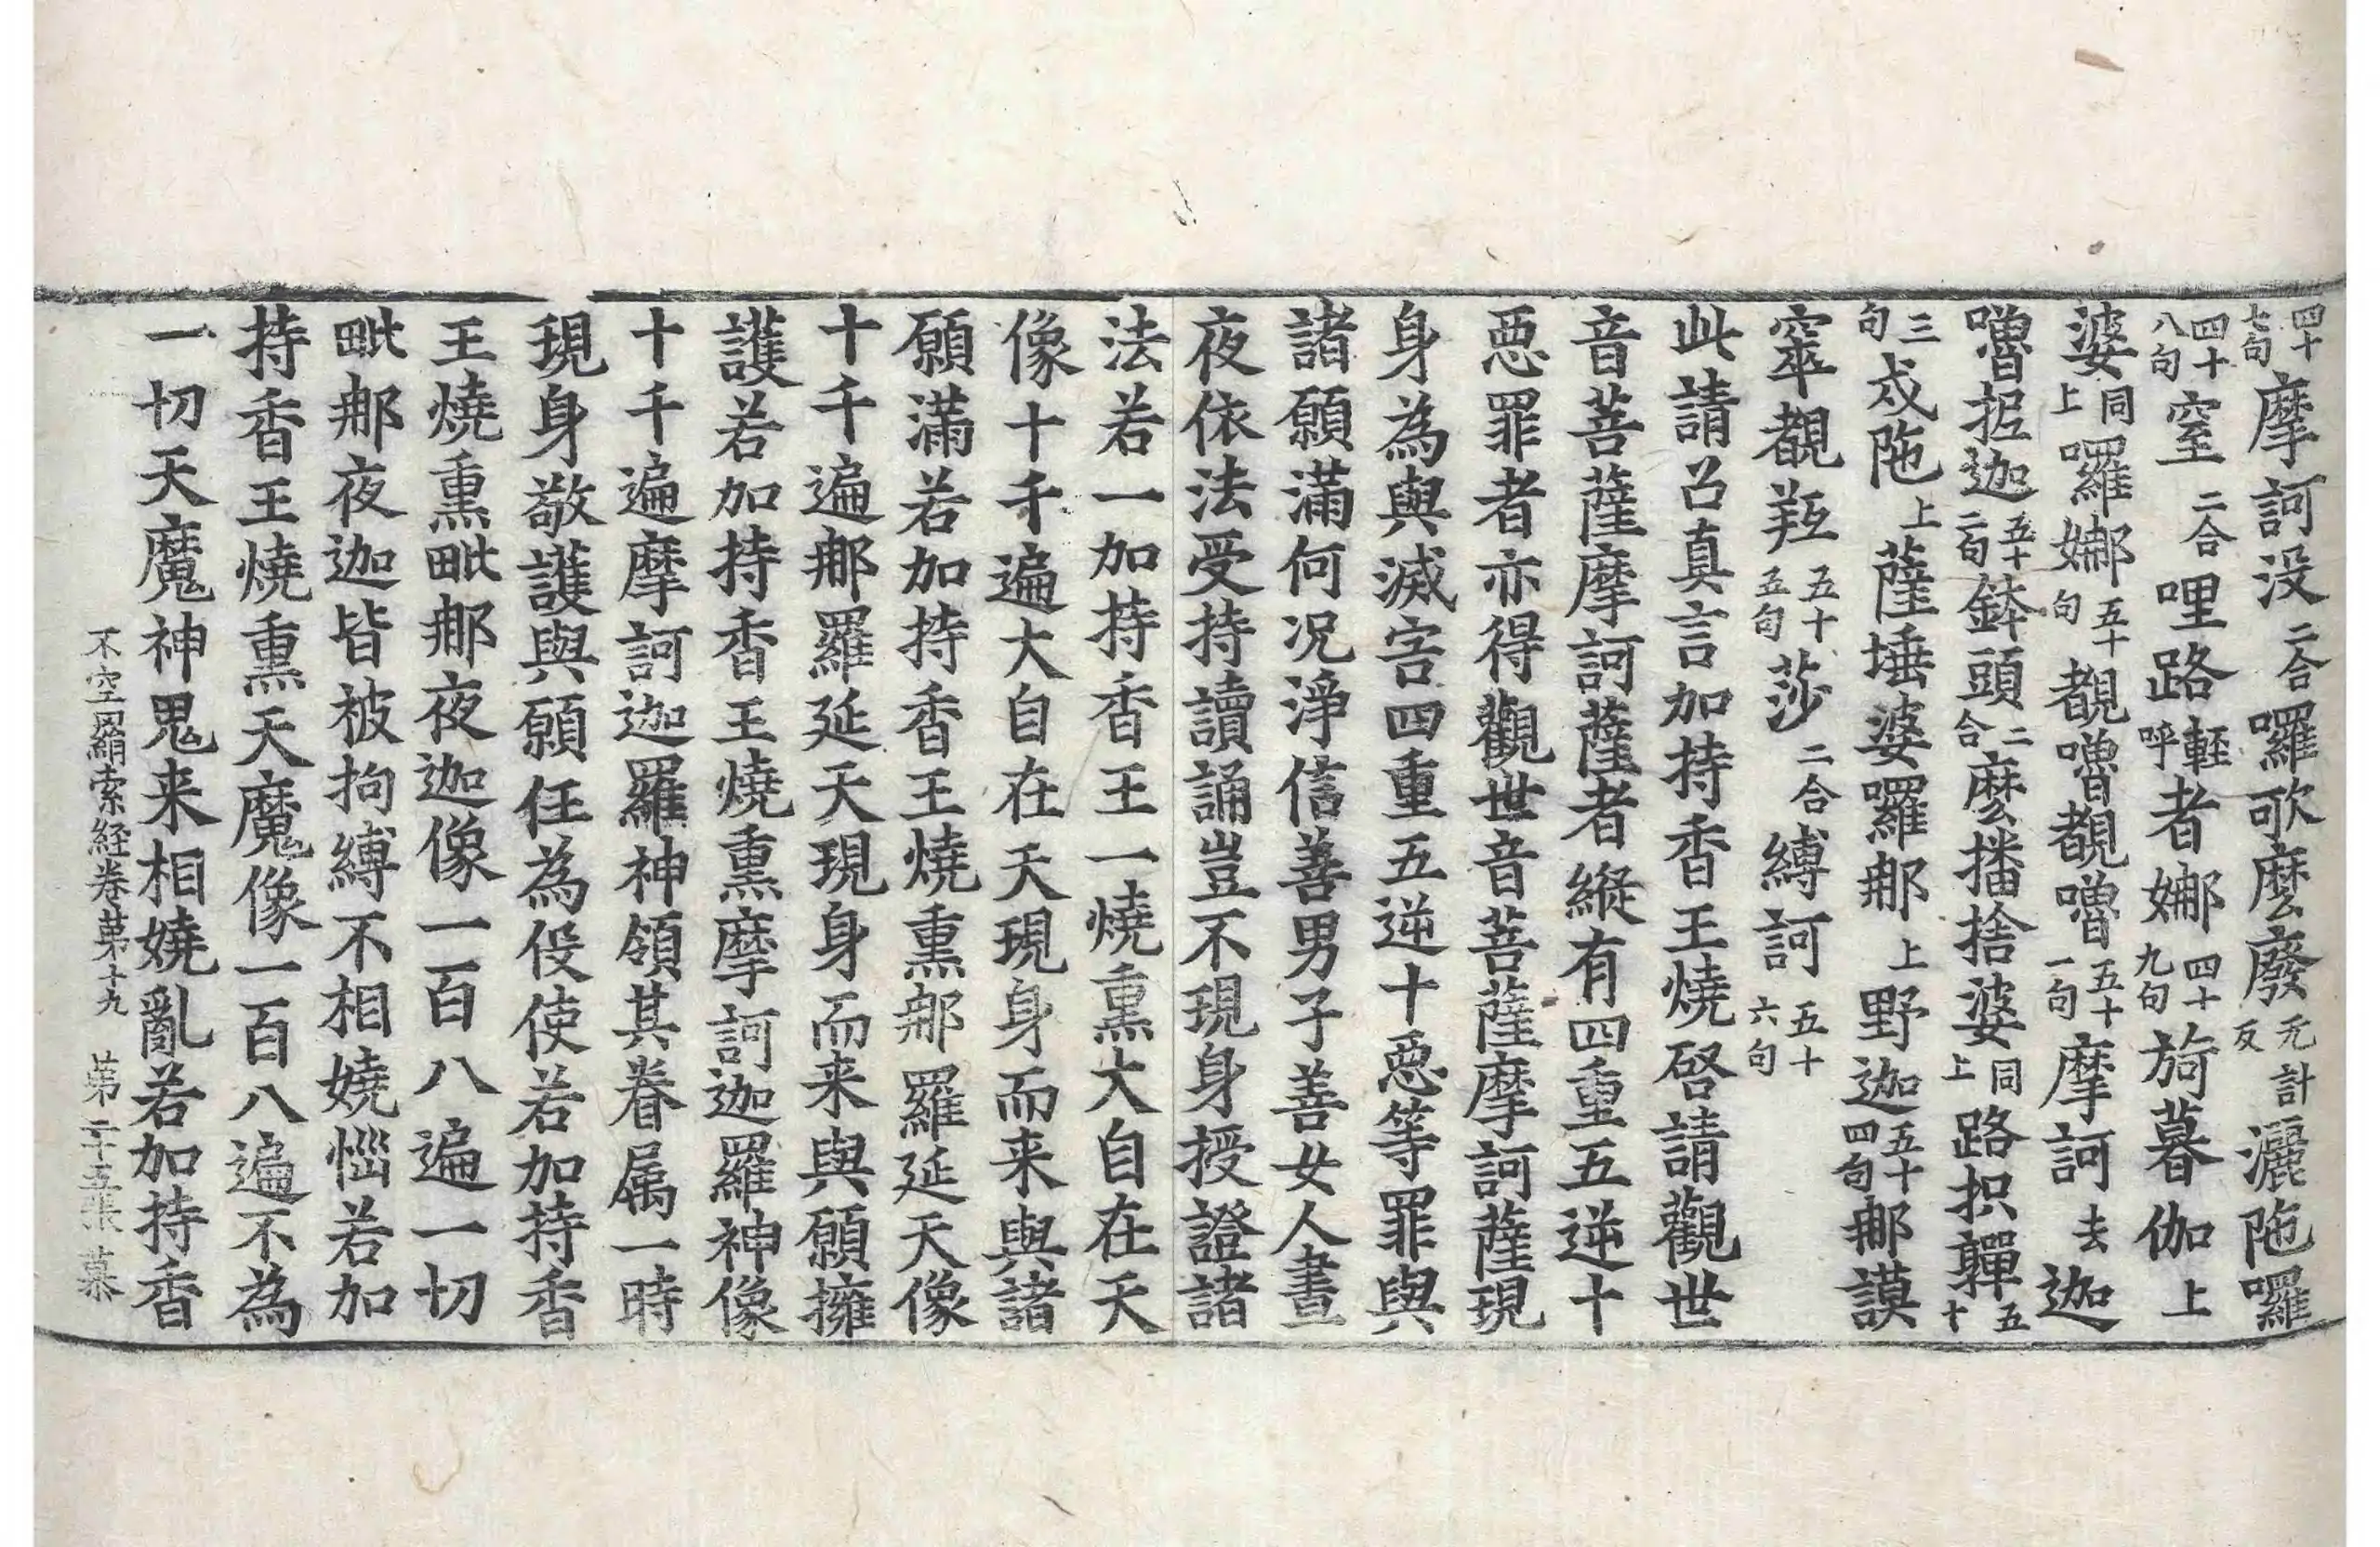 四十七句摩訶没二合囉歌麼廢无計反灑陁囉
四十八句窒二合哩路輕呼者娜四十九句旖暮伽上
婆同上囉娜五十句覩嚕覩嚕五十一句摩訶去迦
嚕抳迦五十二句鉢頭二合麼播捨婆同上路抧軃五十
三句戍陁上薩埵婆囉那上野迦五十四句那謨
窣覩羝五十五句莎二合縛訶五十六句
此請召真言加持香王燒啓請觀世
音菩薩摩訶薩者縱有四重五逆十
惡罪者亦得觀世音菩薩摩訶薩現
身為與滅害四重五逆十惡等罪與
諸願滿何況淨信善男子善女人晝
夜依法受持讀誦豈不現身授證諸
法若一加持香王一燒熏大自在天
像十千遍大自在天現身而来與諸
願滿若加持香王燒熏那羅延天像
十千遍那羅延天現身而来與願擁
護若加持香王燒熏摩訶迦羅神像
十千遍摩訶迦羅神領其眷属一時
現身敬護與願任為伇使若加持香
王燒熏毗那夜迦像一百八遍一切
毗那夜迦皆被拘縛不相嬈惱若加
持香王燒熏天魔像一百八遍不為
一切天魔神鬼来相嬈亂若加持香
不空羂索経卷第十九 第二十五張 慕